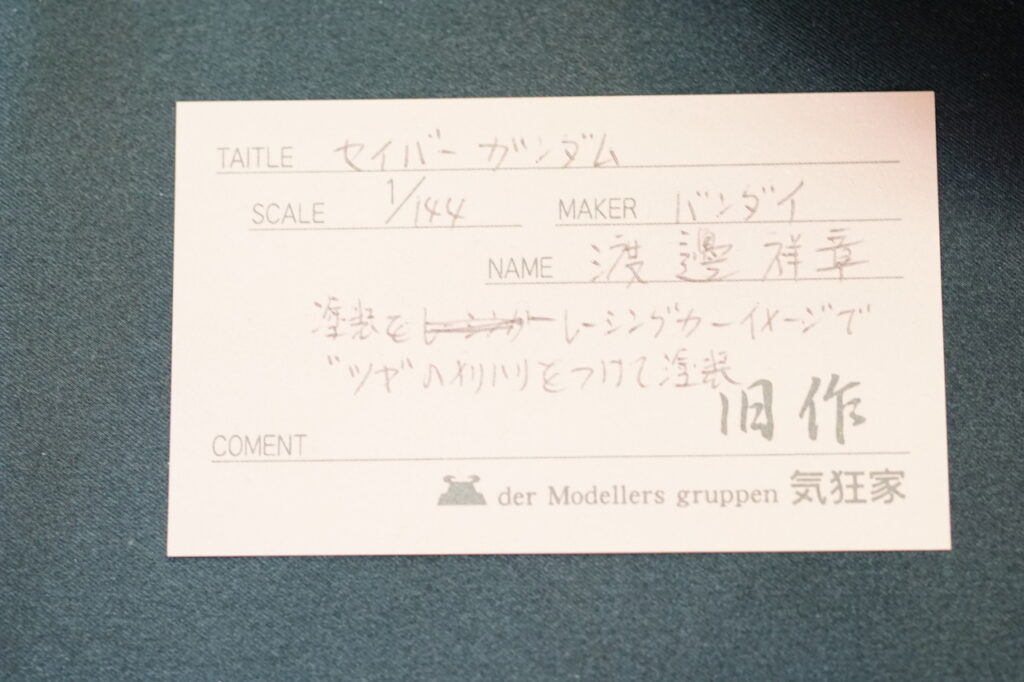 TAITLE セイバーガンダム
SCALE 1/144 MAKER バンダイ
NAME 渡邊祥章
塗装をレーシングカーイメージで
"ツヤ"のメリハリをつけて塗装
旧作
COMENT
der Modellers gruppen 気狂家